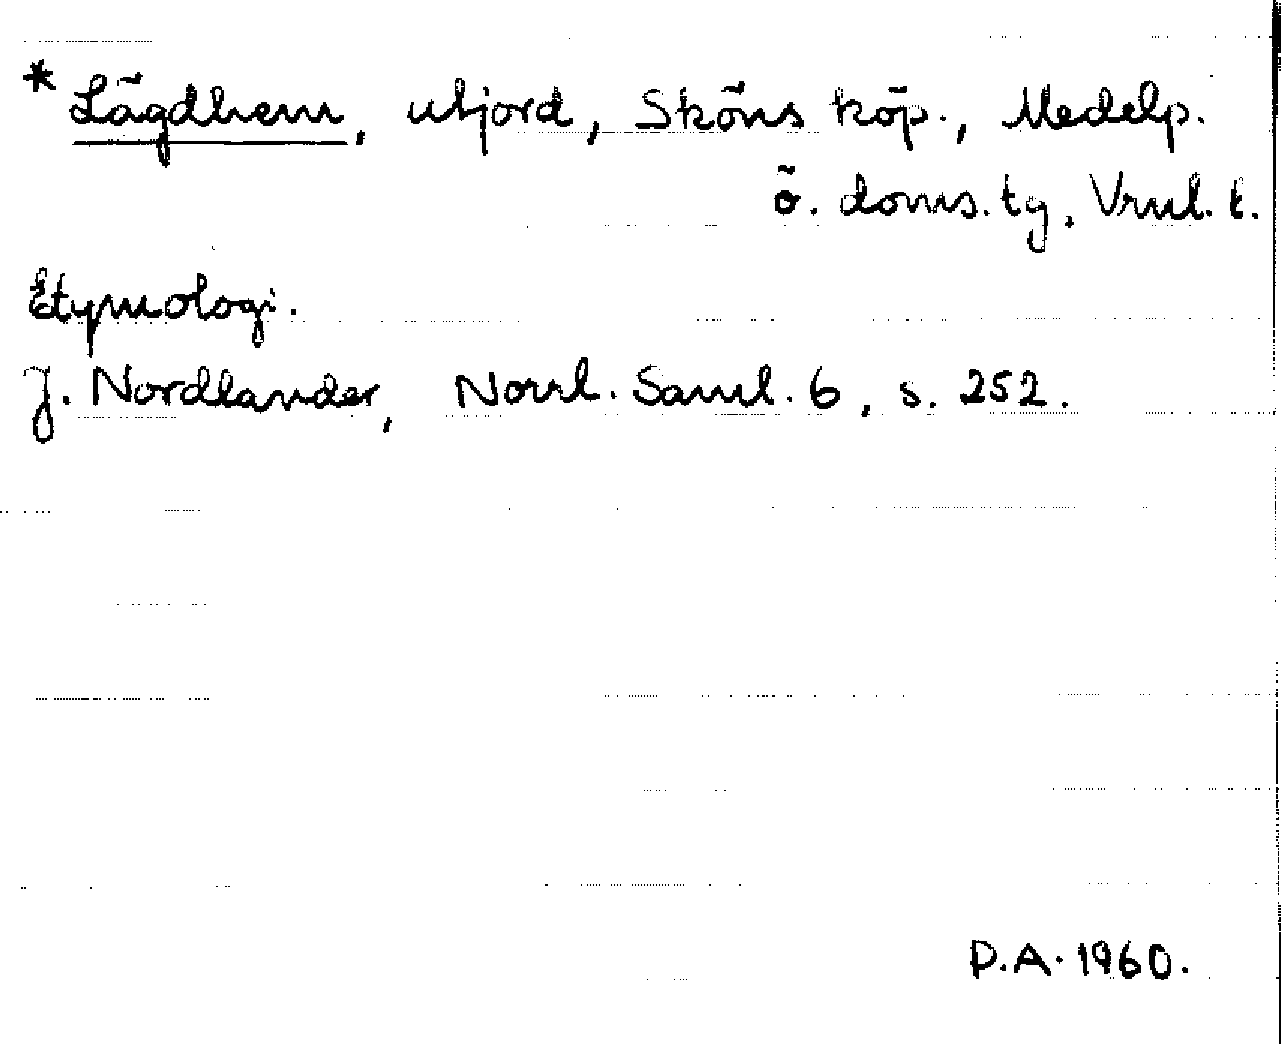 * Lägdhem, utjord, Sköns köp., Medelp.
ö. doms.tg, Vrnl. t.
Etymologi.
J. Nordlander, Norrl. Saml. 6, s. 252.
P.A. 1960.